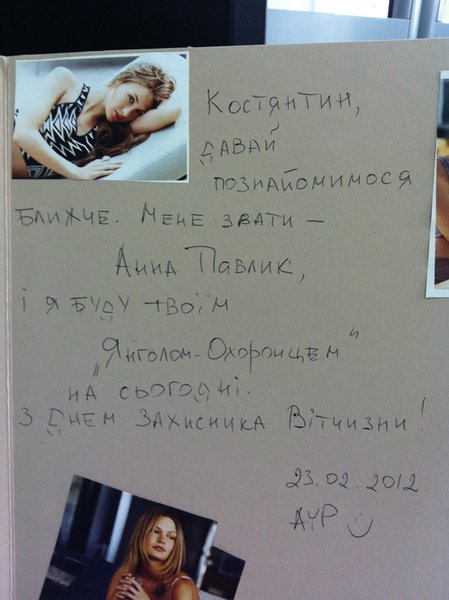 Костянтин,
давай
познайомимося
ближче. Мене звати –
Анна Павлик,
і я буду твоїм
„Янголом-Охоронцем"
на сьогодні.
З Днем Захисника Вітчизни!
23.02.2012